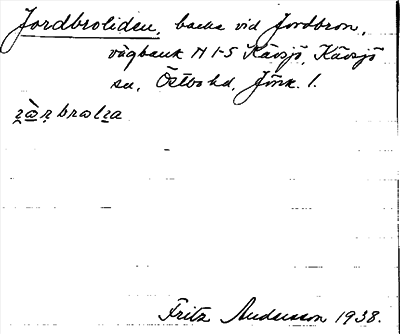 Jordbroliden, backe vid Jordbron,
vägbank N I-S Kävsjö, Kävsjö
sn, Östbo hd, Jönk. l.
Fritz Andersson 1938.